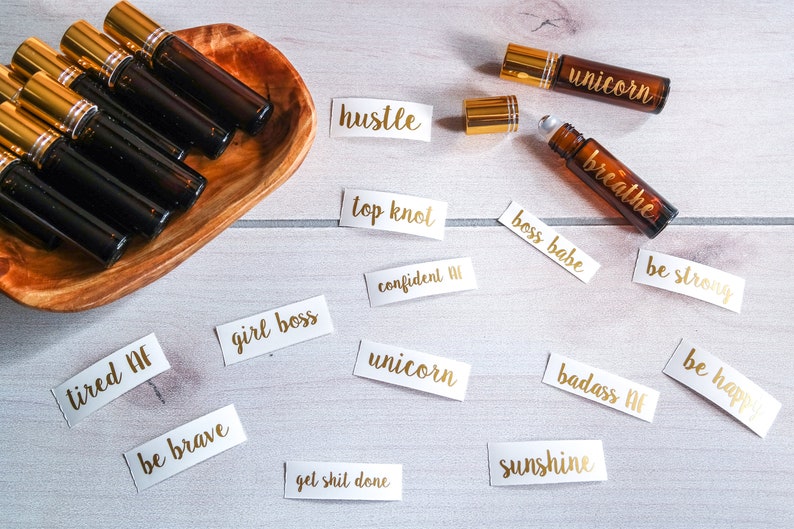 unicorn
hustle
breathe
top knot
boss babe
be strong
confident AF
girl boss
tired AF
unicorn
badass AF
be happy
be brave
get shit done
sunshine